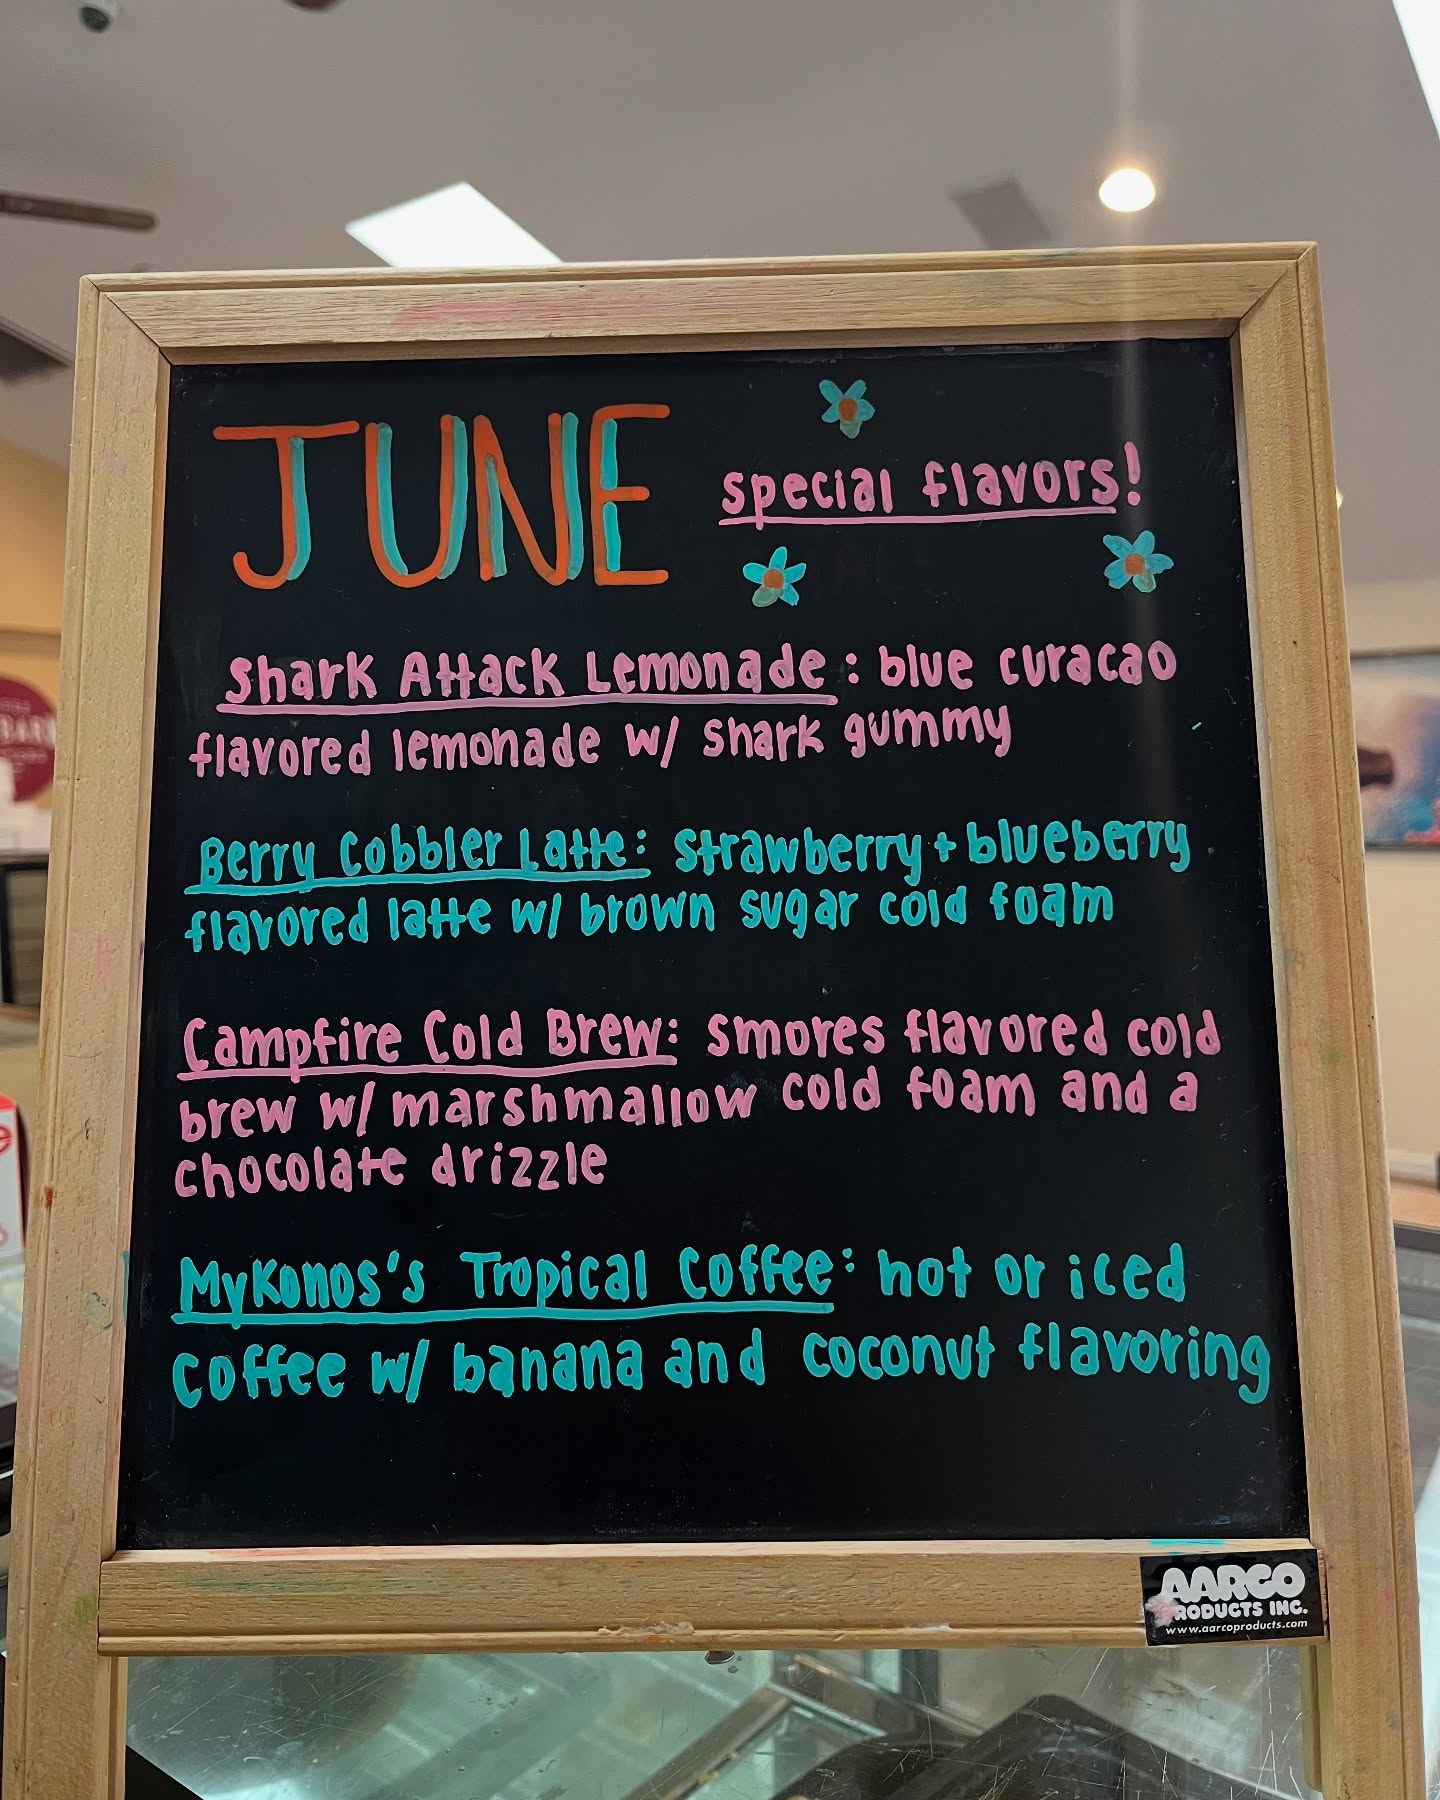 JUNE
special flavors!
Shark Attack Lemonade: blue curacao
flavored lemonade w/ shark gummy
Berry Cobbler Latte: strawberry + blueberry
flavored latte w/ brown sugar cold foam
Campfire Cold Brew: smores flavored cold
brew w/ marshmallow cold foam and a
chocolate drizzle
Mykonos's Tropical Coffee: hot or iced
coffee w/ banana and coconut flavoring
AARCO
PRODUCTS INC.
www.aarcoproducts.com